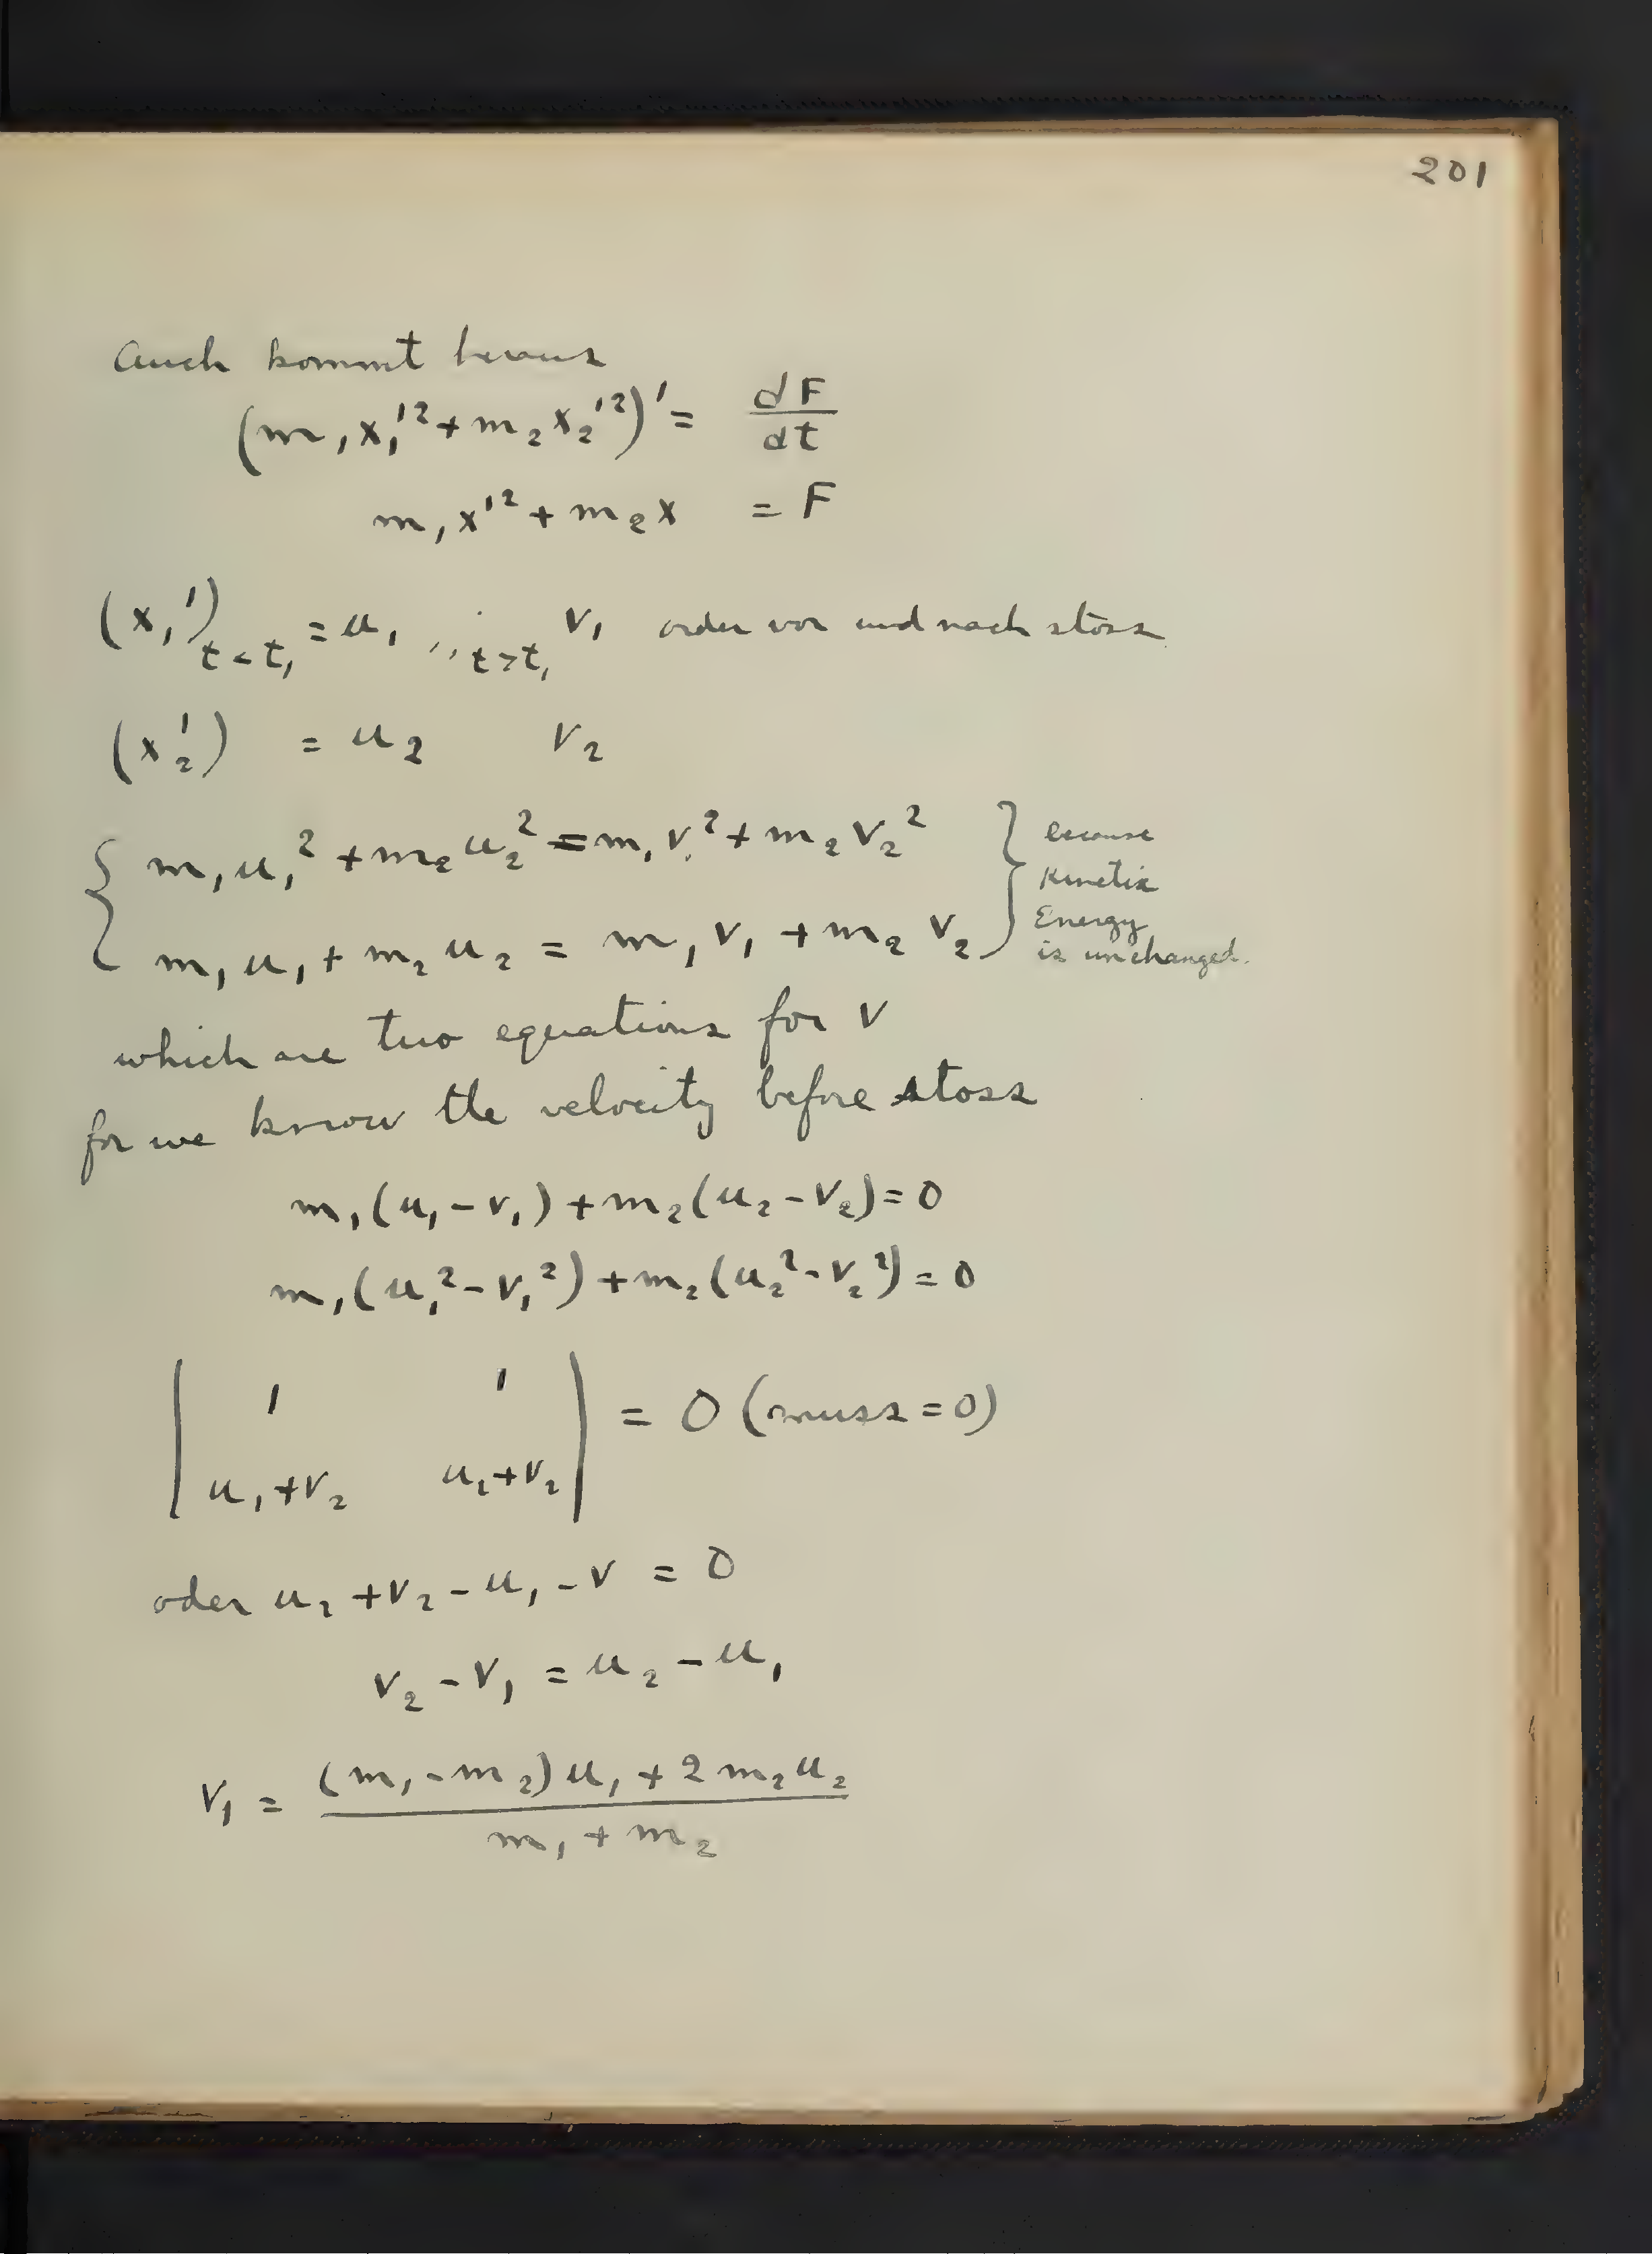 201
Auch kommt heraus
(m₁x₁'² + m₂x₂'²)' = dF/dt
m₁x'² + m₂x = F
(x₁')t<t₁ = u₁ ,, t>t₁ v₁ order vor und nach stoss
(x₂') = u₂ v₂
{ m₁u₁² + m₂u₂² = m₁v₁² + m₂v₂² } because
Kinetic
Energy
m₁u₁ + m₂u₂ = m₁v₁ + m₂v₂ is unchanged.
which are two equations for v
for we know the velocity before stoss
m₁(u₁ - v₁) + m₂(u₂ - v₂) = 0
m₁(u₁² - v₁²) + m₂(u₂² - v₂²) = 0
| 1 1 |
| u₁+v₂ u₂+v₂ | = 0 (muss = 0)
oder u₂ + v₂ - u₁ - v = 0
v₂ - v₁ = u₂ - u₁
v₁ = ((m₁ - m₂)u₁ + 2m₂u₂)/(m₁ + m₂)